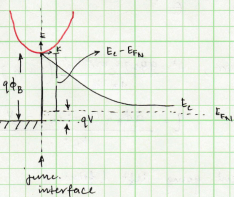 E
K
E_C - E_FN
qϕ_B
E_C
E_FN
qV
junc.
interface